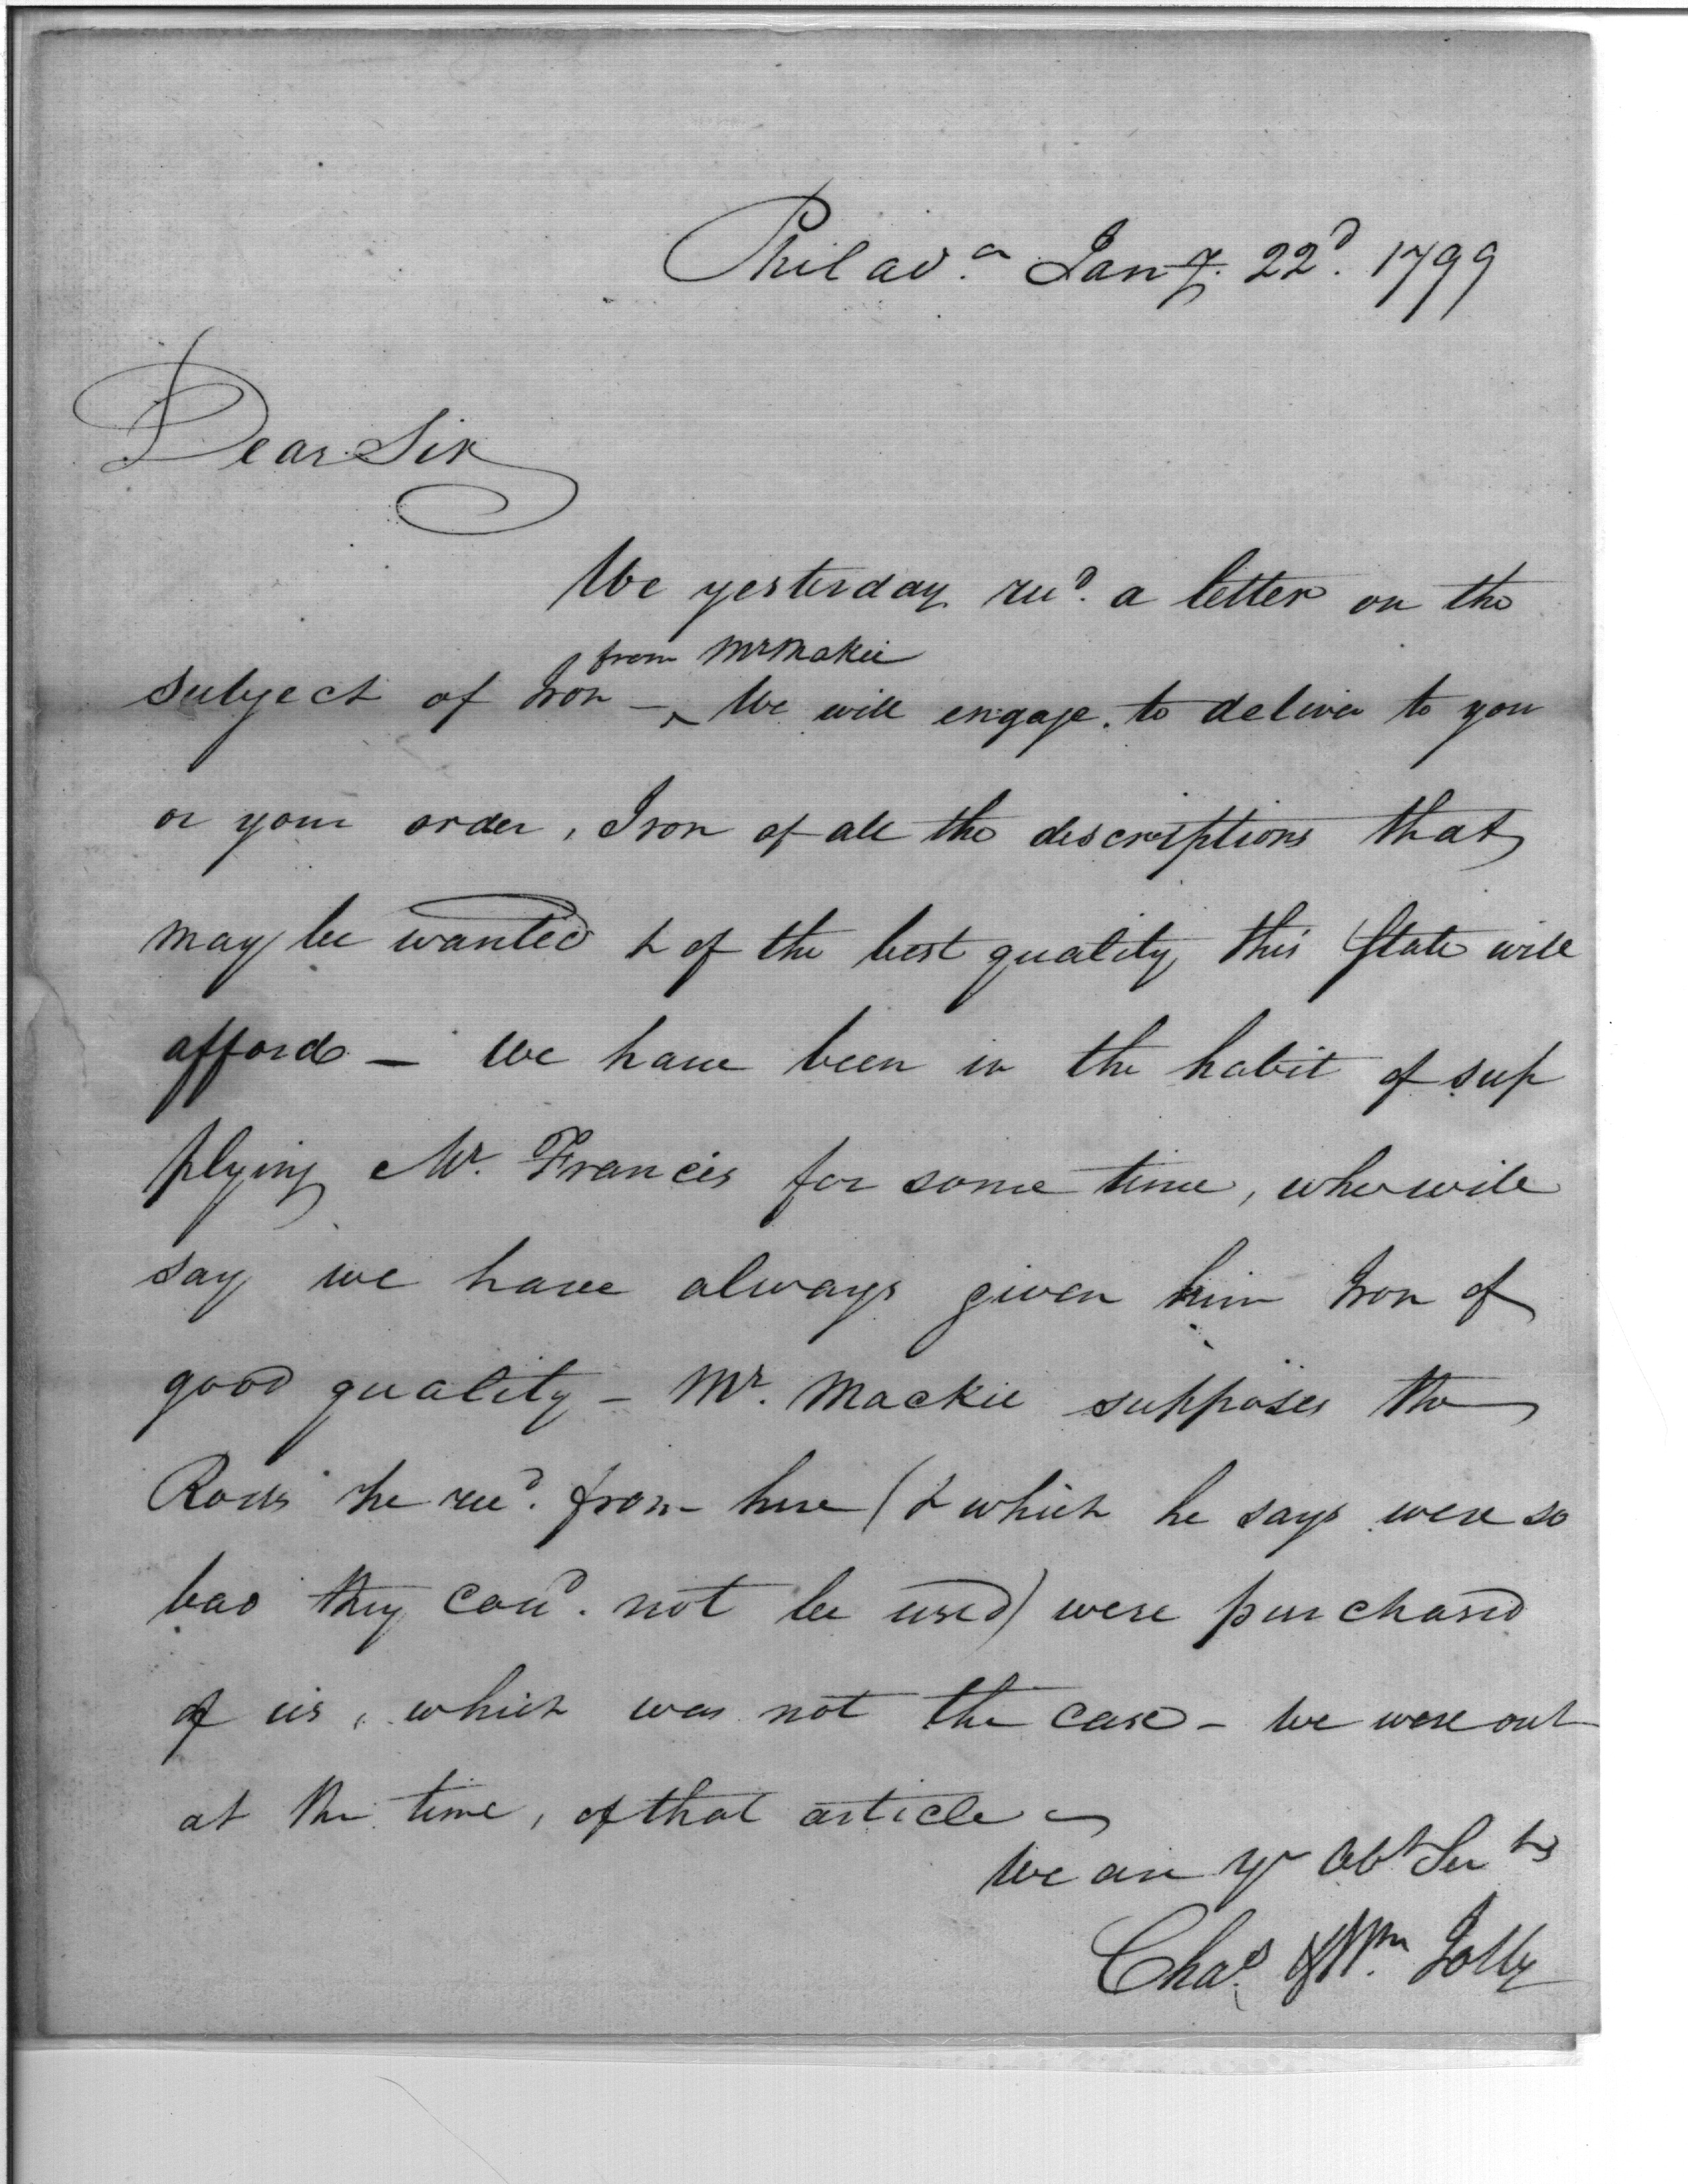 Philad.a Jany. 22d. 1799
Dear Sir
We yesterday recd. a letter on the
from Mr Makie
subject of Iron — ^ We will engage to deliver to you
or your order, Iron of all the descriptions that
may be wanted & of the best quality this State will
afford — We have been in the habit of sup
plying Mr. Francis for some time, who will
say we have always given him Iron of
good quality — Mr. Mackie supposes the
Rods he recd. from here (& which he says were so
bad they coud. not be used) were purchased
of us, which was not the case — We were out
at the time, of that article —
We are yr Obt Servts
Chas. & Wm. Jolly